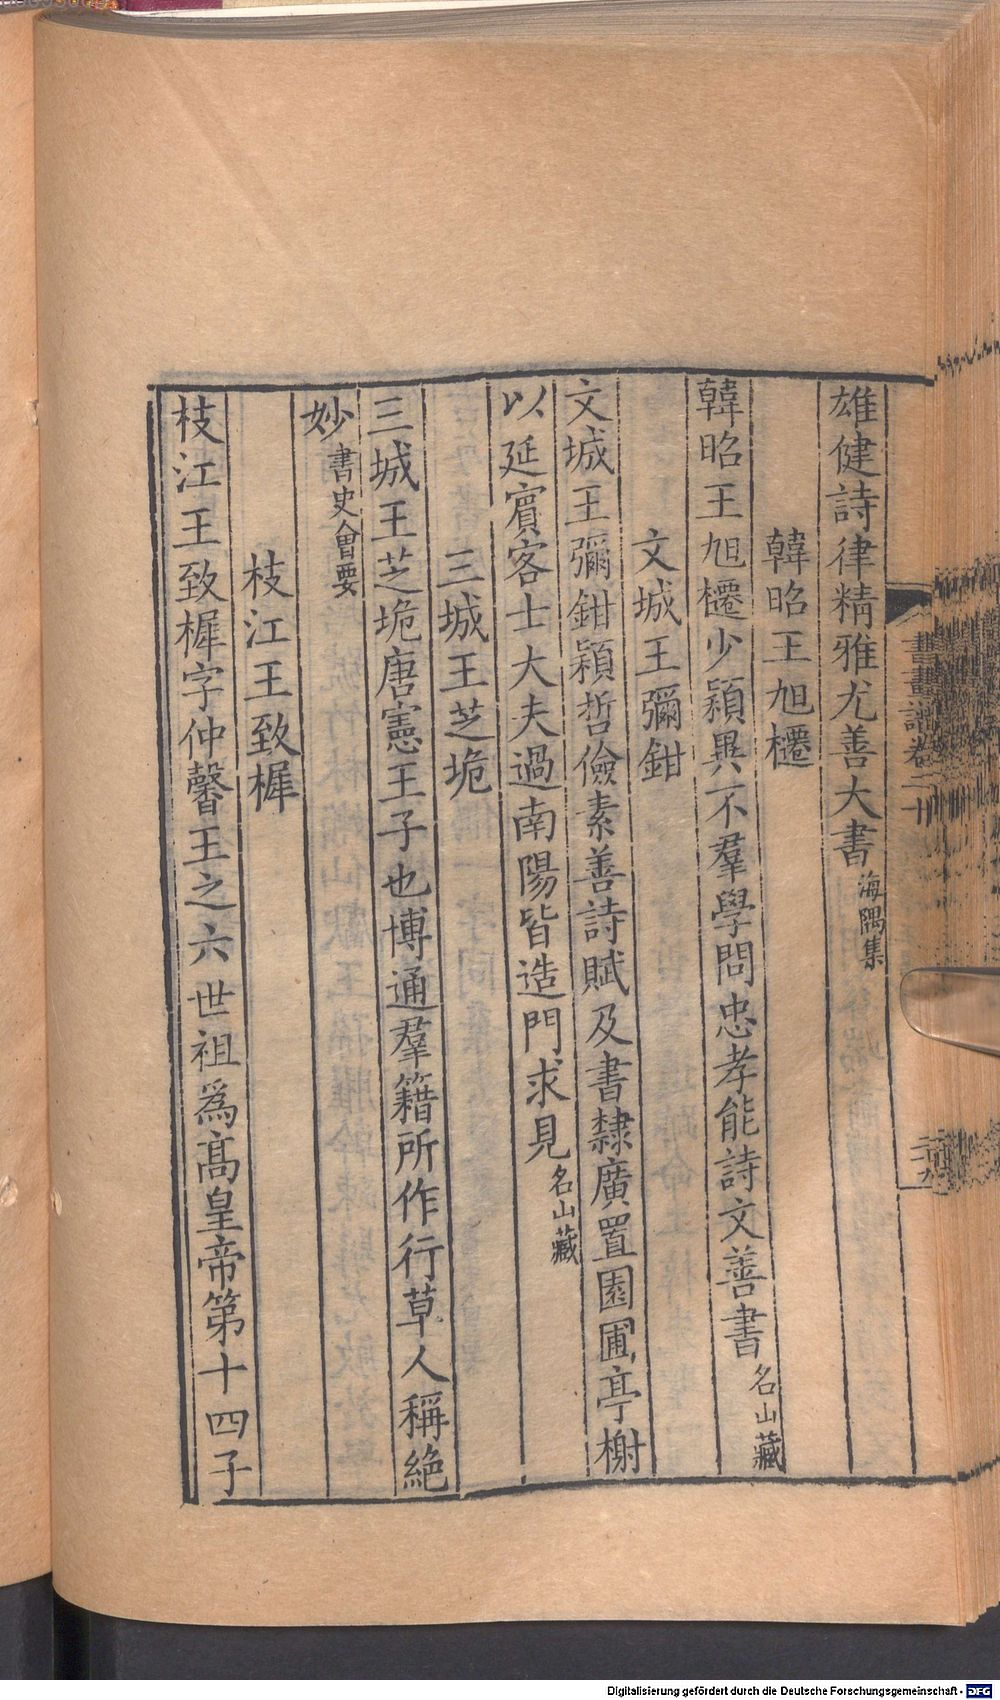 雄健詩律精雅尤善大書海隅集
韓昭王旭櫏
韓昭王旭櫏少穎異不羣學問忠孝能詩文善書名山藏
文城王彌鉗
文城王彌鉗穎哲儉素善詩賦及書隸廣置園圃亭榭
以延賓客士大夫過南陽皆造門求見名山藏
三城王芝垝
三城王芝垝唐憲王子也博通羣籍所作行草人稱絕
妙書史會要
枝江王致樨
枝江王致樨字仲馨王之六世祖為高皇帝第十四子
書畫譜卷二十
Digitalisierung gefördert durch die Deutsche Forschungsgemeinschaft - DFG